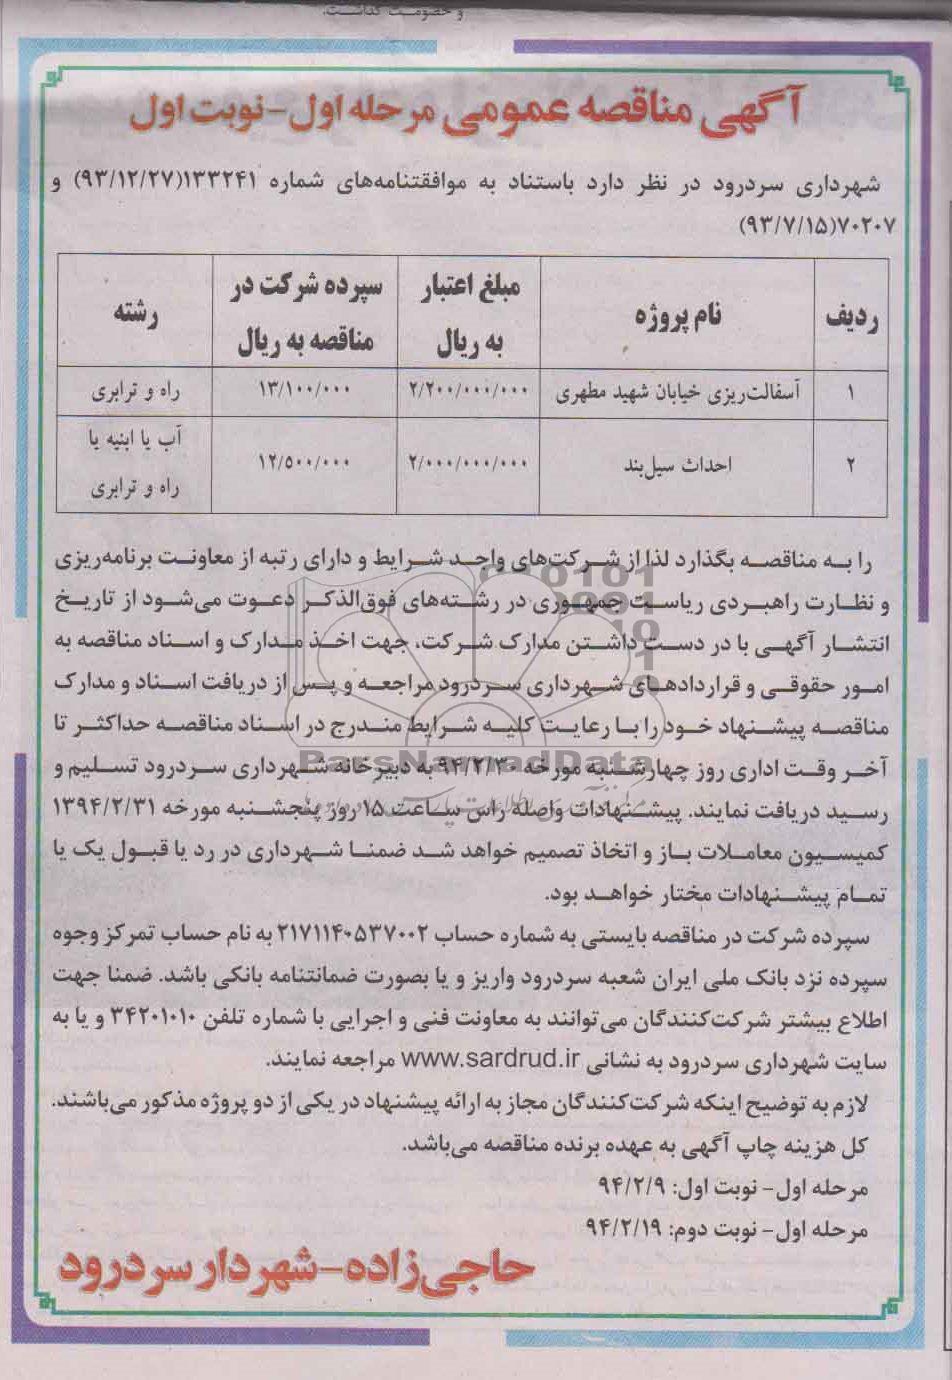 و خصومت گذاشت.
آگهی مناقصه عمومی مرحله اول-نوبت اول
شهرداری سردرود در نظر دارد باستناد به موافقتنامه‌های شماره ۱۳۳۲۴۱(۹۳/۱۲/۲۷) و
۷۰۲۰۷(۹۳/۷/۱۵)
ردیف نام پروژه مبلغ اعتبار به ریال سپرده شرکت در مناقصه به ریال رشته
۱ آسفالت‌ریزی خیابان شهید مطهری ۲/۲۰۰/۰۰۰/۰۰۰ ۱۳/۱۰۰/۰۰۰ راه و ترابری
۲ احداث سیل‌بند ۲/۰۰۰/۰۰۰/۰۰۰ ۱۲/۵۰۰/۰۰۰ آب یا ابنیه یا راه و ترابری
را به مناقصه بگذارد لذا از شرکت‌های واجد شرایط و دارای رتبه از معاونت برنامه‌ریزی
و نظارت راهبردی ریاست جمهوری در رشته‌های فوق‌الذکر دعوت می‌شود از تاریخ
انتشار آگهی با در دست داشتن مدارک شرکت، جهت اخذ مدارک و اسناد مناقصه به
امور حقوقی و قراردادهای شهرداری سردرود مراجعه و پس از دریافت اسناد و مدارک
مناقصه پیشنهاد خود را با رعایت کلیه شرایط مندرج در اسناد مناقصه حداکثر تا
آخر وقت اداری روز چهارشنبه مورخه ۹۴/۲/۳۰ به دبیرخانه شهرداری سردرود تسلیم و
رسید دریافت نمایند. پیشنهادات واصله راس ساعت ۱۵ روز پنجشنبه مورخه ۱۳۹۴/۲/۳۱
کمیسیون معاملات باز و اتخاذ تصمیم خواهد شد ضمنا شهرداری در رد یا قبول یک یا
تمام پیشنهادات مختار خواهد بود.
سپرده شرکت در مناقصه بایستی به شماره حساب ۲۱۷۱۱۴۰۵۳۷۰۰۲ به نام حساب تمرکز وجوه
سپرده نزد بانک ملی ایران شعبه سردرود واریز و یا بصورت ضمانتنامه بانکی باشد. ضمنا جهت
اطلاع بیشتر شرکت‌کنندگان می‌توانند به معاونت فنی و اجرایی با شماره تلفن ۳۴۲۰۱۰۱۰ و یا به
سایت شهرداری سردرود به نشانی www.sardrud.ir مراجعه نمایند.
لازم به توضیح اینکه شرکت‌کنندگان مجاز به ارائه پیشنهاد در یکی از دو پروژه مذکور می‌باشند.
کل هزینه چاپ آگهی به عهده برنده مناقصه می‌باشد.
مرحله اول- نوبت اول: ۹۴/۲/۹
مرحله اول- نوبت دوم: ۹۴/۲/۱۹
حاجی‌زاده-شهردار سردرود
ParsNamadData